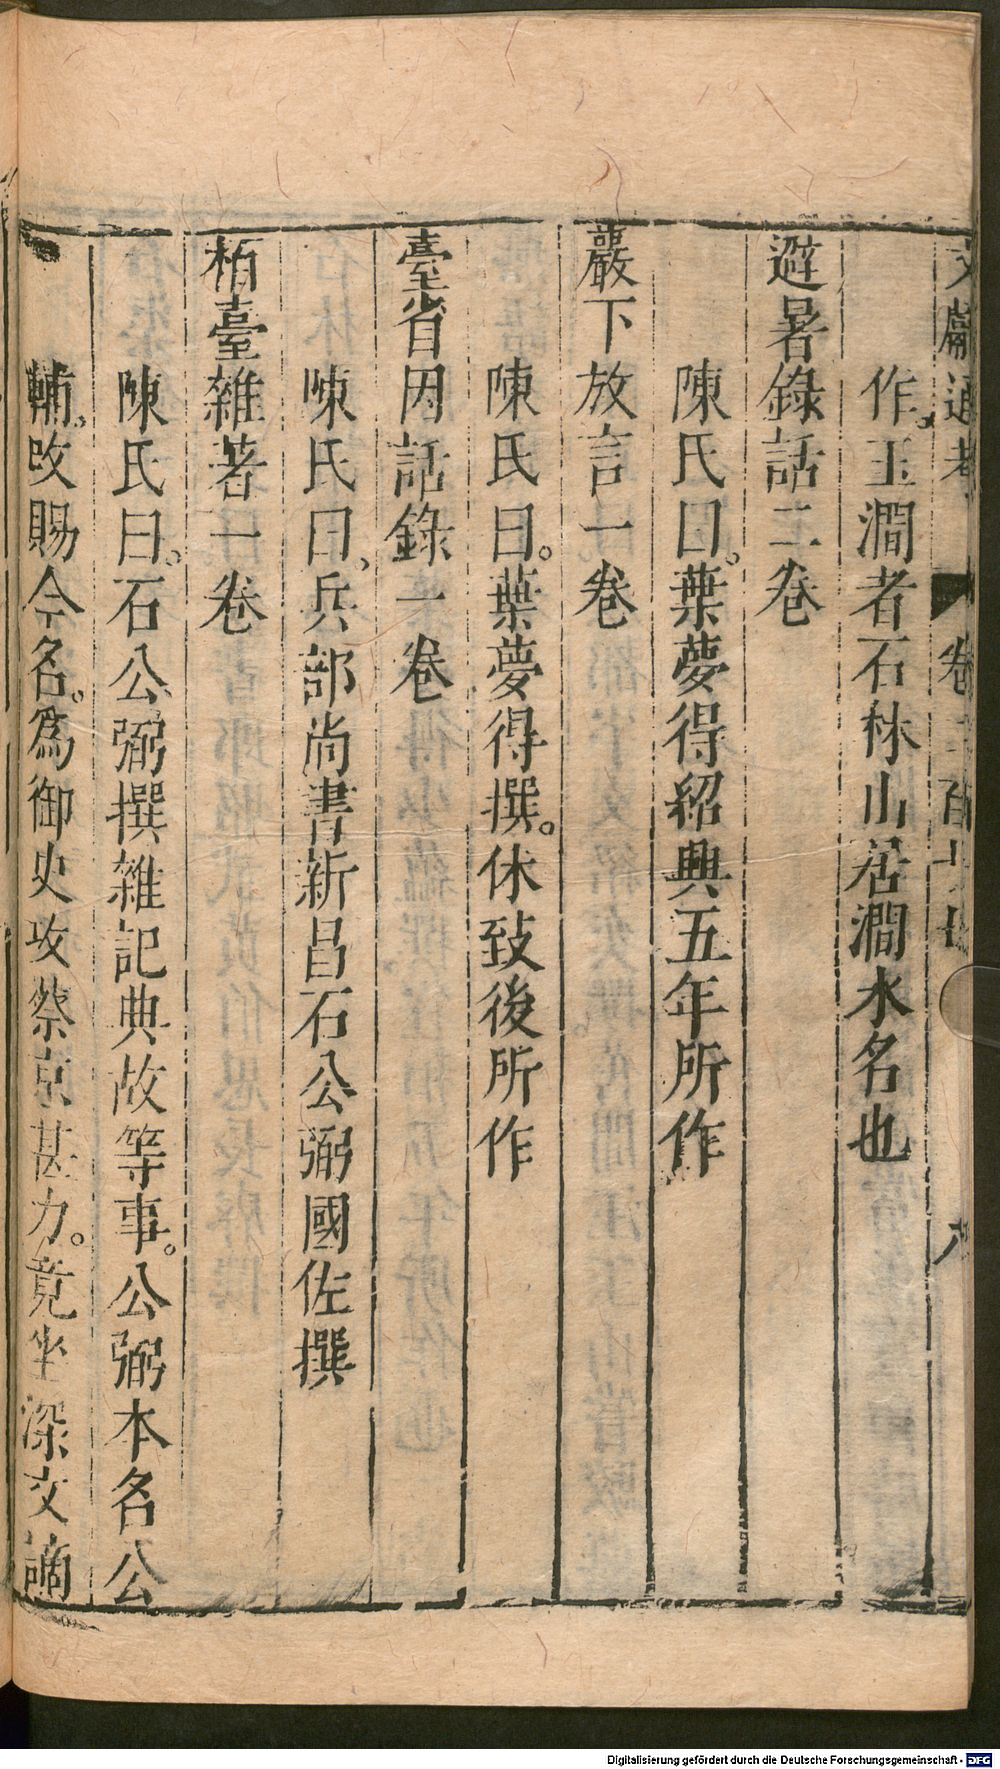 作。玉澗者石林山居澗水名也
避暑錄話二卷
陳氏曰。葉夢得紹興五年所作
巖下放言一卷
陳氏曰。葉夢得撰。休致後所作
臺省因話錄一卷
陳氏曰、兵部尚書新昌石公弼國佐撰
柏臺雜著一卷
陳氏曰。石公弼撰雜記典故等事。公弼本名公
輔。改賜今名。爲御史攻蔡京甚力。竟坐深文謫
Digitalisierung gefördert durch die Deutsche Forschungsgemeinschaft - DFG